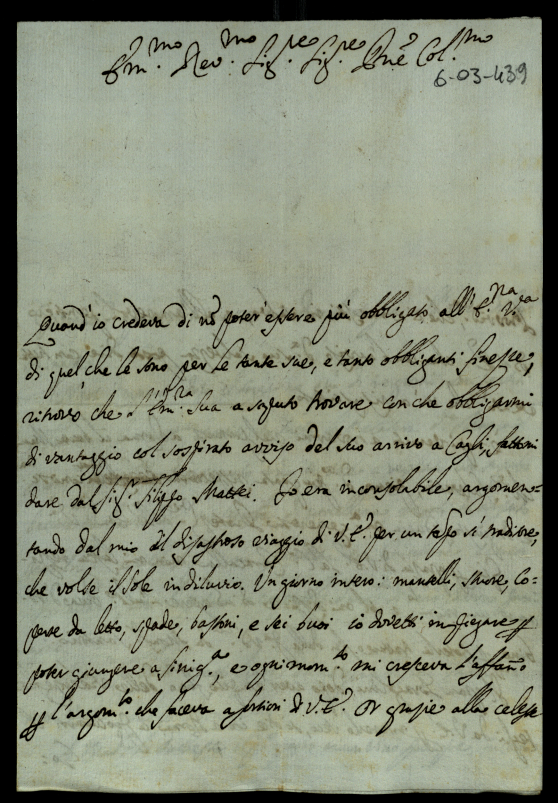 Em.mo Rev.mo Sig.re Sig.re Pne Col.mo
6-03-439
Quand' io credeva di nō poter' essere più obbligato all' E.nza V.ra
di quel che le sono per le tante sue, e tanto obbliganti finezze,
ritrovo che l' Em.za Sua a saputo trovare con che obbligarmi
di vantaggio col sospirato avviso del suo arrivo a Cagli, fattomi
dare dal Sig.r Filippo Mattei. Io era inconsolabile, argomen=
tando dal mio il disastroso viaggio di V.E. per un tempo sì traditore,
che volse il Sole in diluvio. Un giorno intero: mantelli, stuore, co=
perte da letto, spade, bastoni, e sei buoi io dovetti impiegare p
poter giungere a Sinig.a, e ogni mom.to mi cresceva l'affanno
p l'argom.to che faceva a V.E. Or grazie alla celeste